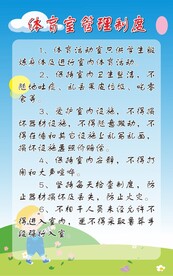 体育室管理制度
1、体育活动室只供学生锻
炼身体及进行室内体育活动
2、保持室内卫生整洁,不
随地吐痰,乱丢果皮纸屑,吃零
食等
3、爱护室内设施,不得损
坏器材设施,不得随意搬动,不
得在墙和其它设施上乱写乱画,
损坏设施要照价赔偿。
4、保持室内安静,不得打
闹和大声喧哗。
5、坚持每天检查制度,防
止器材损坏及丢失,防止火灾。
6、不相干人员未经允许不
得进入室内,更不得采取暴